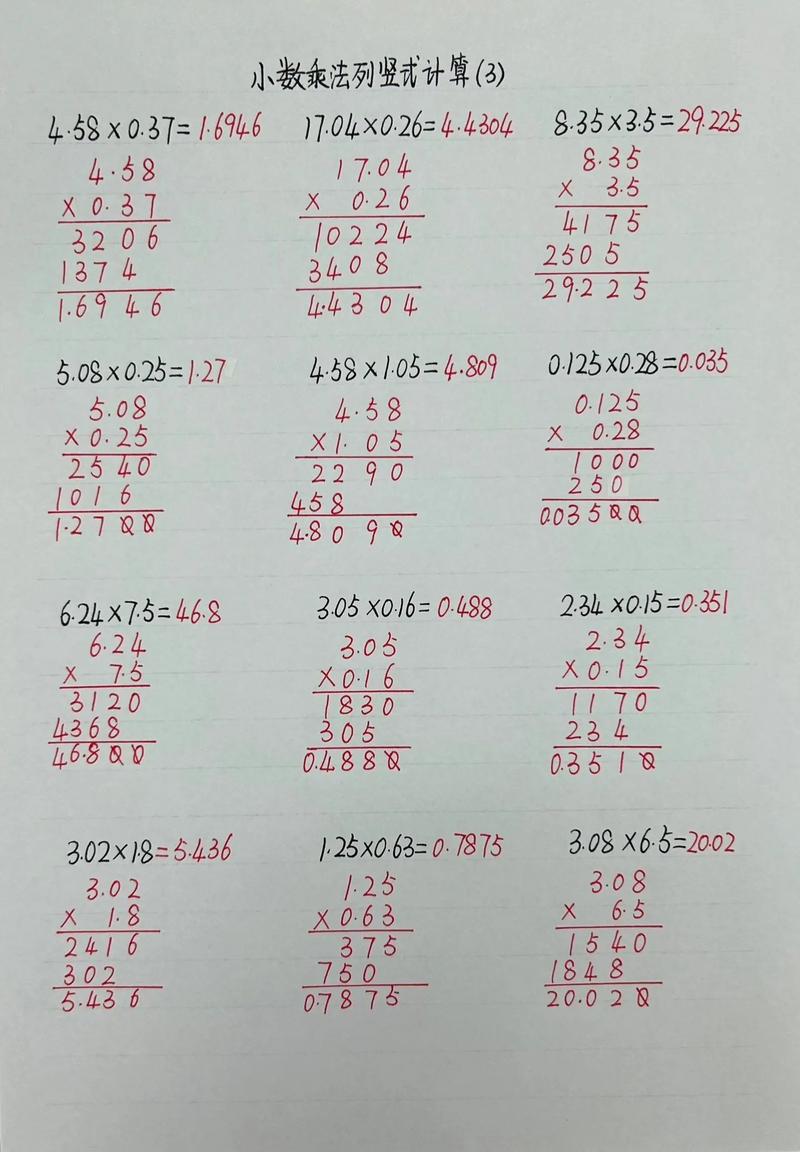 小数乘法列竖式计算(3)
4.58×0.37=1.6946
4.58
× 0.37
3206
1374
1.6946
17.04×0.26=4.4304
17.04
× 0.26
10224
3408
4.4304
8.35×3.5=29.225
8.35
× 3.5
4175
2505
29.225
5.08×0.25=1.27
5.08
×0.25
2540
1016
1.2700
4.58×1.05=4.809
4.58
×1.05
2290
458
4.8090
0.125×0.28=0.035
0.125
× 0.28
1000
250
0.03500
6.24×7.5=46.8
6.24
× 7.5
3120
4368
46.800
3.05×0.16=0.488
3.05
×0.16
1830
305
0.4880
2.34×0.15=0.351
2.34
×0.15
1170
234
0.3510
3.02×1.8=5.436
3.02
× 1.8
2416
302
5.436
1.25×0.63=0.7875
1.25
×0.63
375
750
0.7875
3.08×6.5=20.02
3.08
× 6.5
1540
1848
20.020